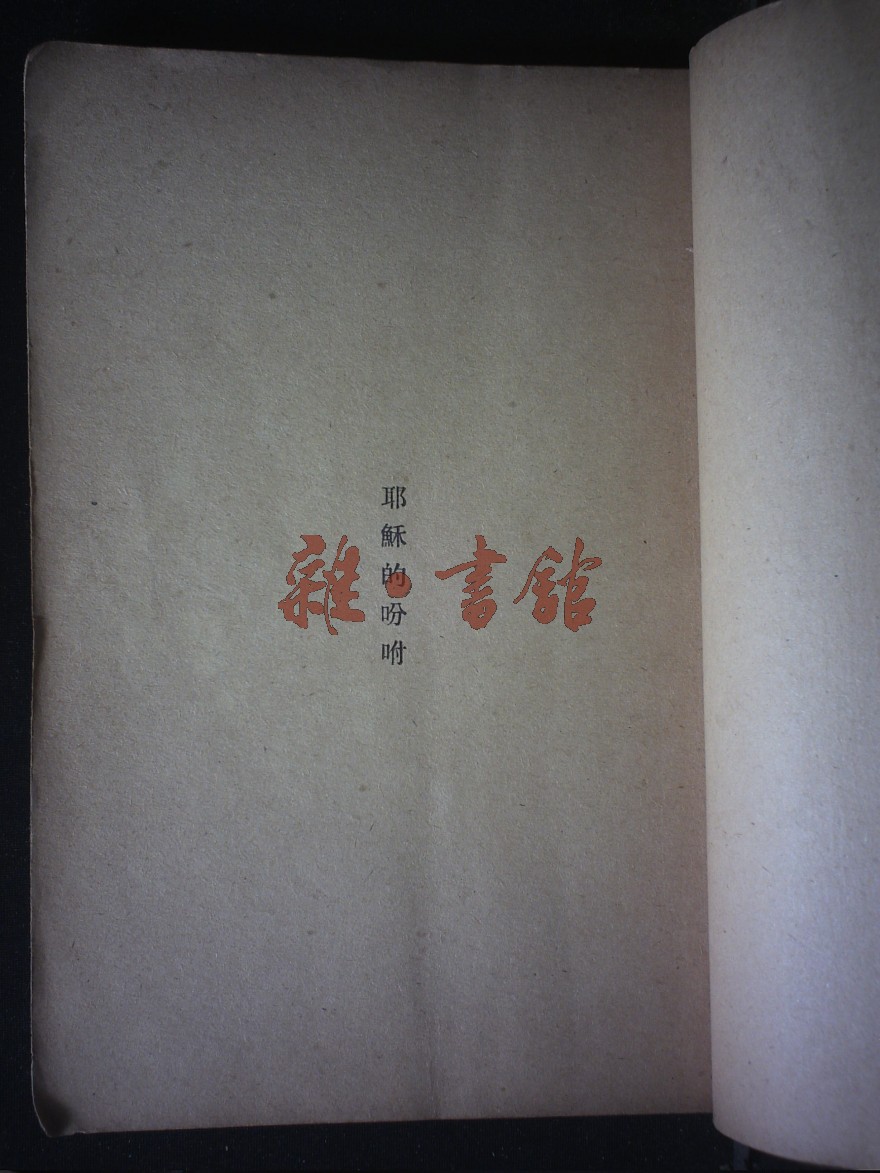 耶穌的吩咐
雜·書館